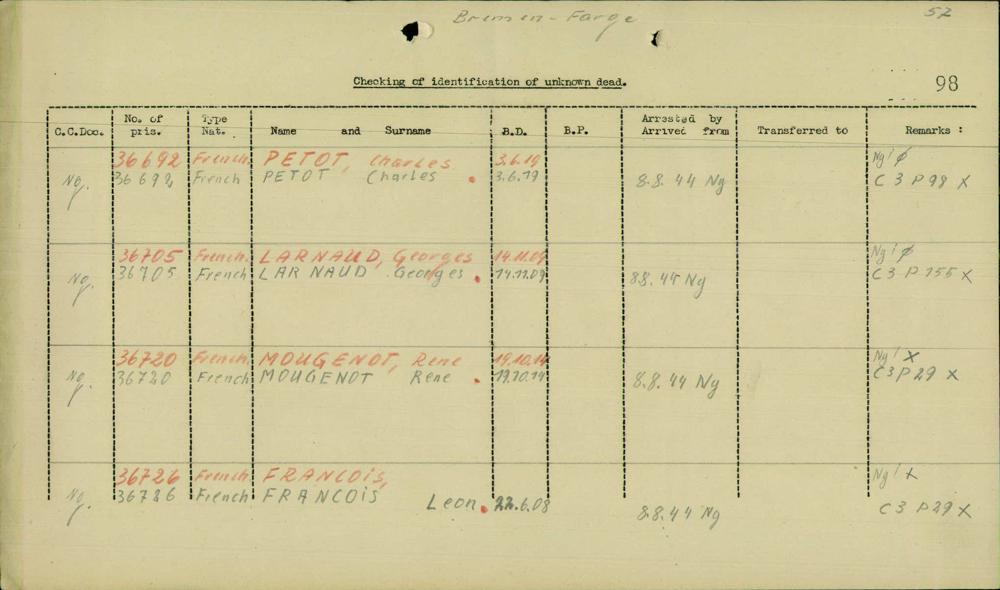 Bremen-Farge
57
Checking of identification of unknown dead.
98
C.C.Doc. No. of pris. Type Nat. Name and Surname B.D. B.P. Arrested by Arrived from Transferred to Remarks :
36692 French PETOT, Charles 3.6.19 Ng!
Ng. 36692 French PETOT Charles . 3.6.19 8.8.44 Ng C3 P98 X
36705 French. LARNAUD, Georges 14.11.09 Ng!
Ng. 36705 French LARNAUD Georges . 14.11.09 8.8.44 Ng C3 P155 X
36720 French. MOUGENOT, Rene 19.10.14 Ng! X
Ng. 36720 French MOUGENOT Rene . 19.10.14 8.8.44 Ng C3 P29 X
36726 French FRANCOIS, Ng! X
Ng. 36726 French FRANCOIS Leon . 22.6.08 8.8.44 Ng C3 P29 X